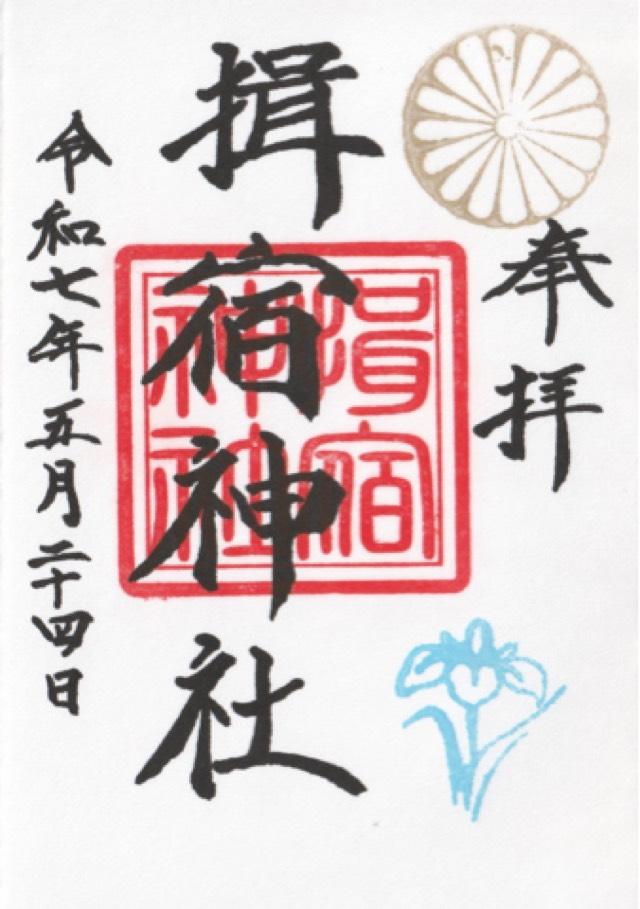 奉拝
揖宿神社
揖宿
神社
令和七年五月二十四日